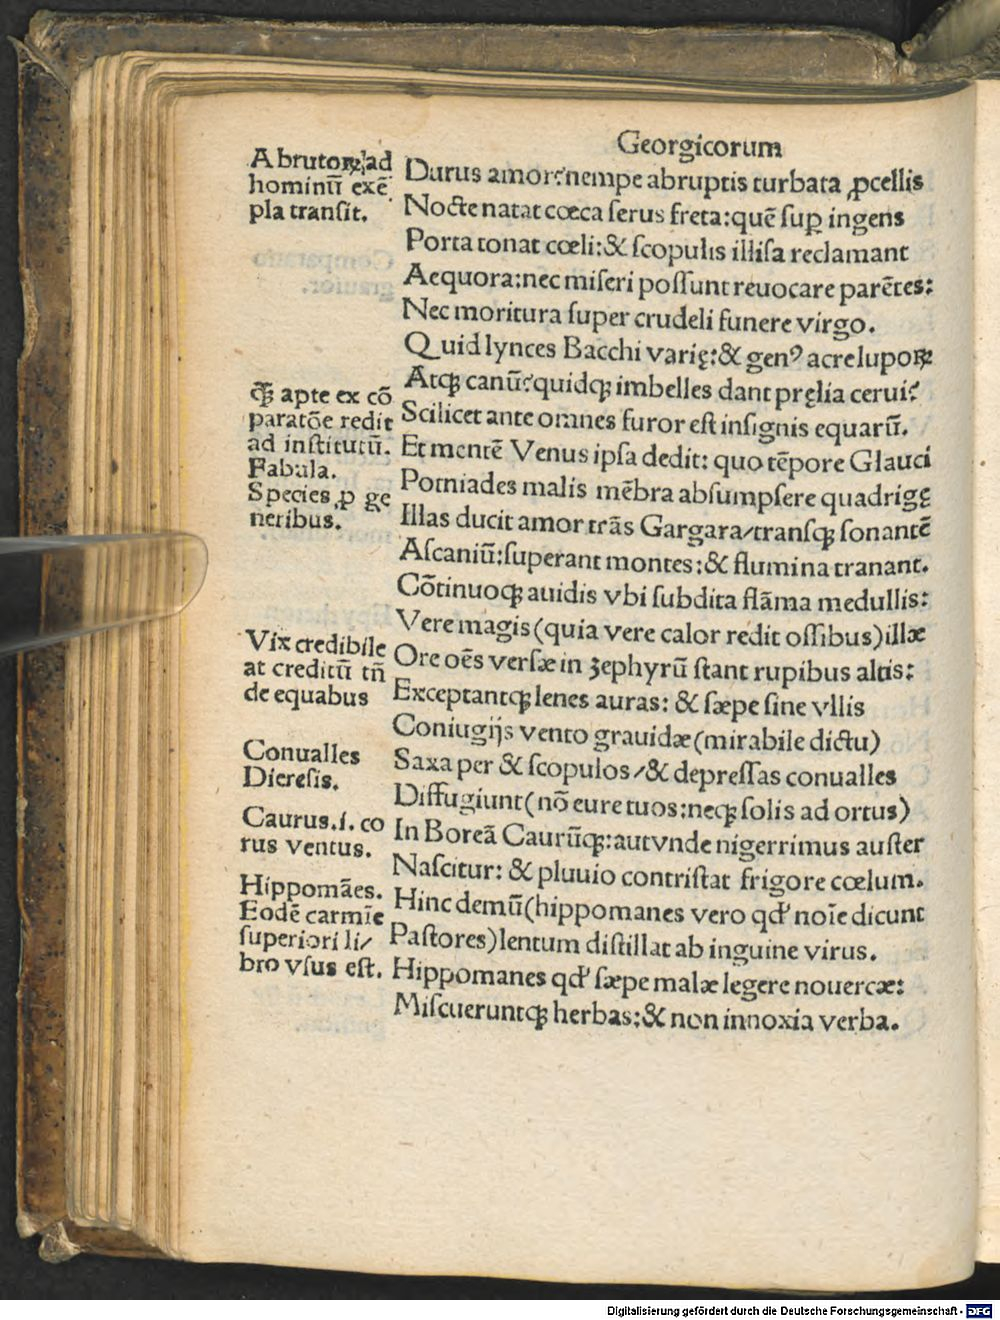 Georgicorum
Abrutoꝝ ad
hominū exē
pla tranſit.
Durus amor?nempe abruptis turbata ꝓcellis
Nocte natat cœca ſerus freta:quē ſuꝑ ingens
Porta tonat cœli:& ſcopulis illiſa reclamant
Aequora:nec miſeri poſſunt reuocare parētes:
Nec moritura ſuper crudeli funere virgo.
Quid lynces Bacchi varię:& genꝰ acre lupoꝝ
Atqꝫ canū?quidqꝫ imbelles dant pręlia cerui?
Scilicet ante omnes furor eſt inſignis equarū.
Et mentē Venus ipſa dedit: quo tēpore Glauci
Potniades malis mēbra abſumpſere quadrigę
Illas ducit amor trās Gargara/tranſqꝫ ſonantē
Aſcaniū:ſuperant montes:& flumina tranant.
Cōtinuoqꝫ auidis vbi ſubdita flāma medullis:
Vere magis(quia vere calor redit oſſibus)illæ
Ore oēs verſæ in zephyrū ſtant rupibus altis:
Exceptantqꝫ lenes auras: & ſæpe ſine vllis
Coniugijs vento grauidæ(mirabile dictu)
Saxa per & ſcopulos/& depreſſas conualles
Diffugiunt(nō eure tuos:neqꝫ ſolis ad ortus)
In Boreā Caurūqꝫ:aut vnde nigerrimus auſter
Naſcitur: & pluuio contriſtat frigore cœlum.
Hinc demū(hippomanes vero qd' noīe dicunt
Paſtores)lentum diſtillat ab inguine virus.
Hippomanes qd' ſæpe malæ legere nouercæ:
Miſcueruntqꝫ herbas:& non innoxia verba.
qꝫ apte ex cō
paratōe redit
ad inſtitutū.
Fabula.
Species ꝓ ge
neribus.
Vix credibile
at creditū tñ
de equabus
Conualles
Diereſis.
Caurus.i. co
rus ventus.
Hippomāes.
Eodē carmīe
ſuperiori li/
bro vſus eſt.
Digitalisierung gefördert durch die Deutsche Forschungsgemeinschaft - DFG